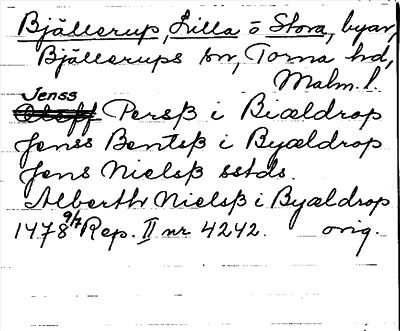 Bjällerup, Lilla o Stora, byar,
Bjällerups sn, Torna hd,
Malm. l.
Jenss
Persß i Biældrop
Jenss Bentsß i Byældrop
Jens Nielsß sstds.
Alberthr Nielsß i Byældrop
1478 9/7 Rep. II nr 4242. orig.